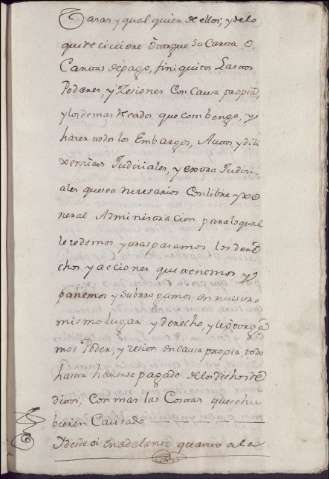 Caras y qualquiera de ellos; y de lo
que reciviere otorgue su Carta o
Cartas de pago, finiquitos Lastos
Poderes, y Zesiones Con Causa propia,
y los demas recados que Combengo, y
haxer todos los Embargos, Autos y dili
xencias Judiciales, y extra Judici
ales que sea necesarios Con libre y xe
neral Administracion para lo qual
le zedemos y traspasamos los dere
chos y acciones que tenemos y
ponemos y subrrogamos en nuestro
mismo lugar y derecho y le otorga
mos Poder, y zesion en Causa propia todo
hasta haverse pagado de los dichos
Con mas las Costas que se hu
bieren Causado
Y desde oi en adelante quanto a la